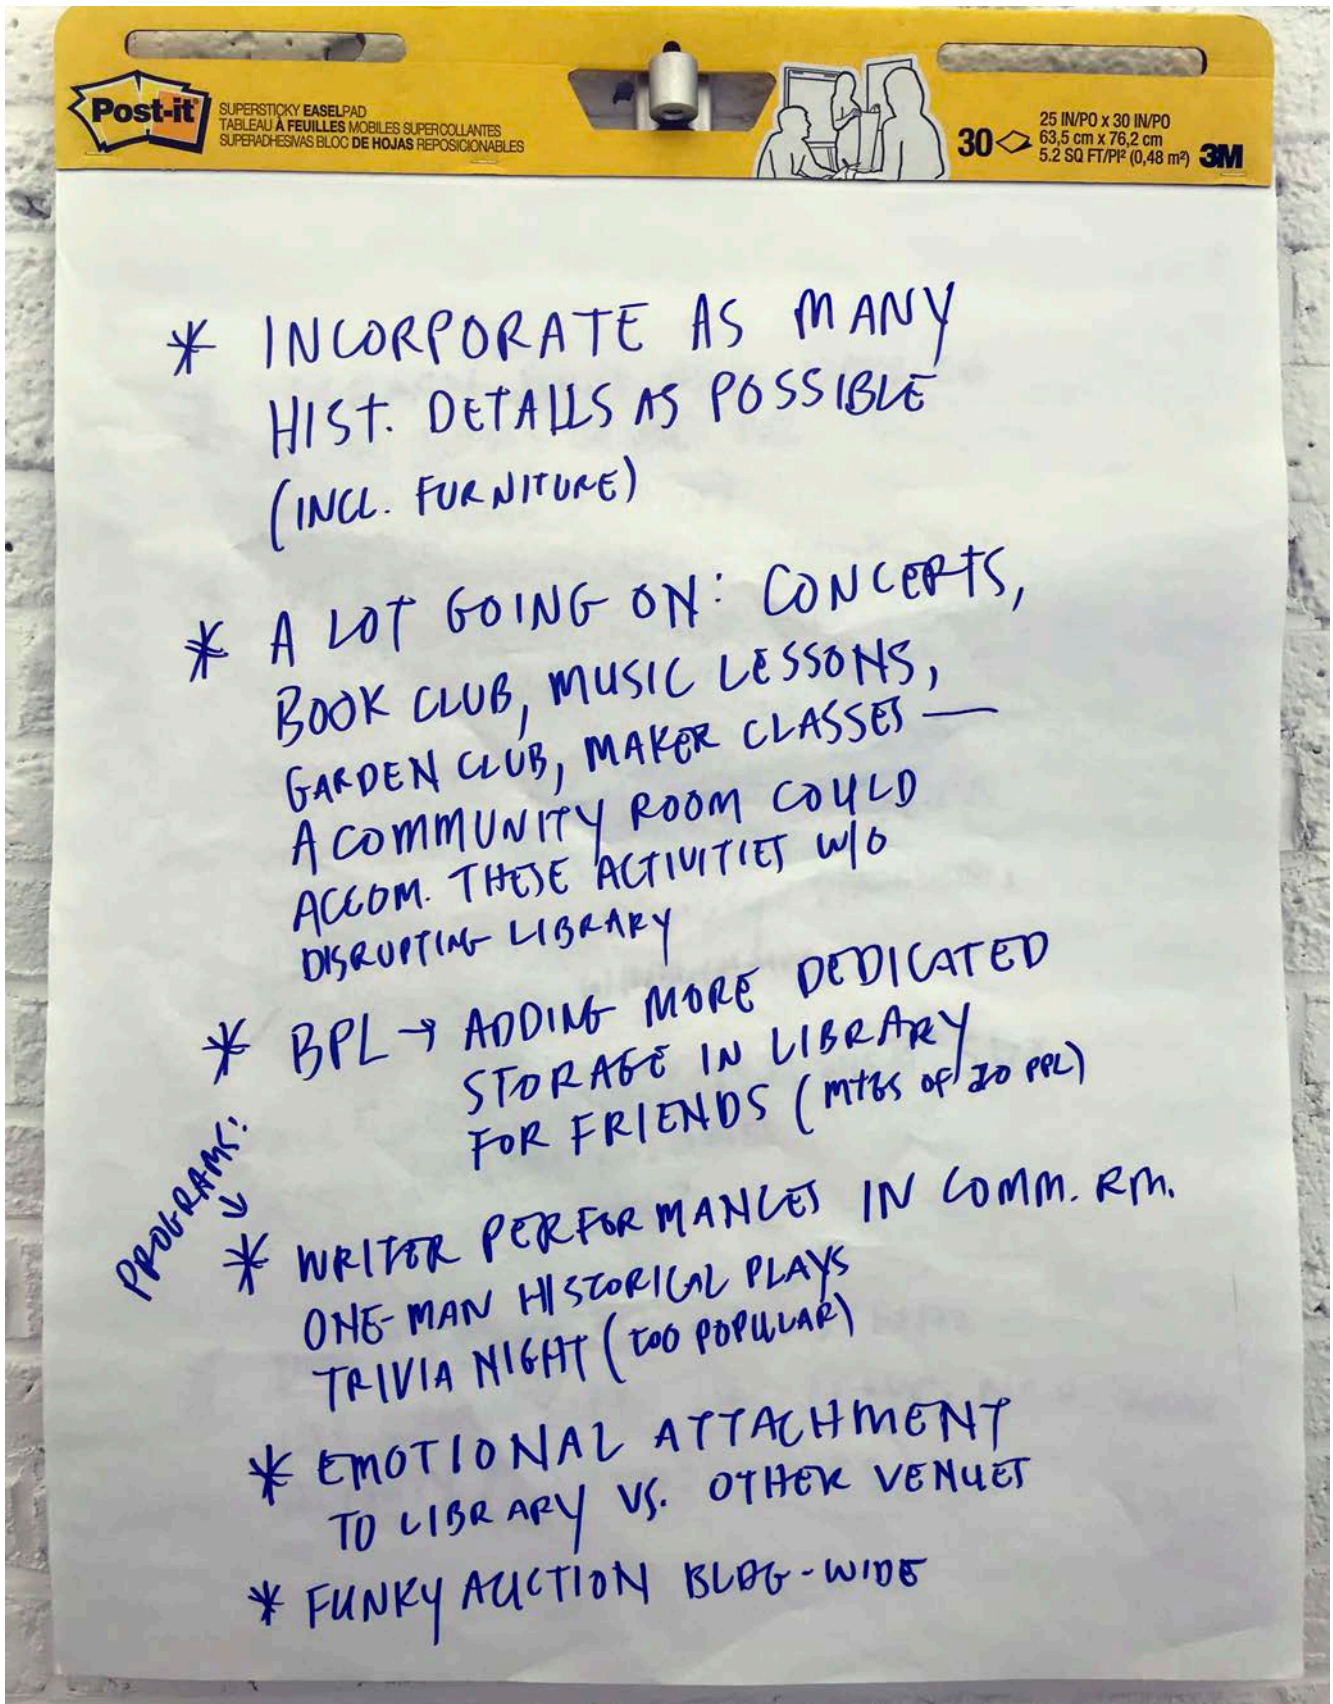 Post-it
SUPERSTICKY EASELPAD
TABLEAU À FEUILLES MOBILES SUPERCOLLANTES
SUPERADHESIVAS BLOC DE HOJAS REPOSICIONABLES
30
25 IN/PO x 30 IN/PO
63,5 cm x 76,2 cm
5.2 SQ FT/PI² (0,48 m²)
3M
* INCORPORATE AS MANY
HIST. DETAILS AS POSSIBLE
(INCL. FURNITURE)
* A LOT GOING ON: CONCERTS,
BOOK CLUB, MUSIC LESSONS,
GARDEN CLUB, MAKER CLASSES —
A COMMUNITY ROOM COULD
ACCOM. THESE ACTIVITIES W/O
DISRUPTING LIBRARY
* BPL → ADDING MORE DEDICATED
STORAGE IN LIBRARY
FOR FRIENDS (MTGS OF 20 PPL)
PROGRAMS: ↓
* WRITER PERFORMANCES IN COMM. RM.
ONE-MAN HISTORICAL PLAYS
TRIVIA NIGHT (TOO POPULAR)
* EMOTIONAL ATTACHMENT
TO LIBRARY VS. OTHER VENUES
* FUNKY AUCTION BLDG-WIDE